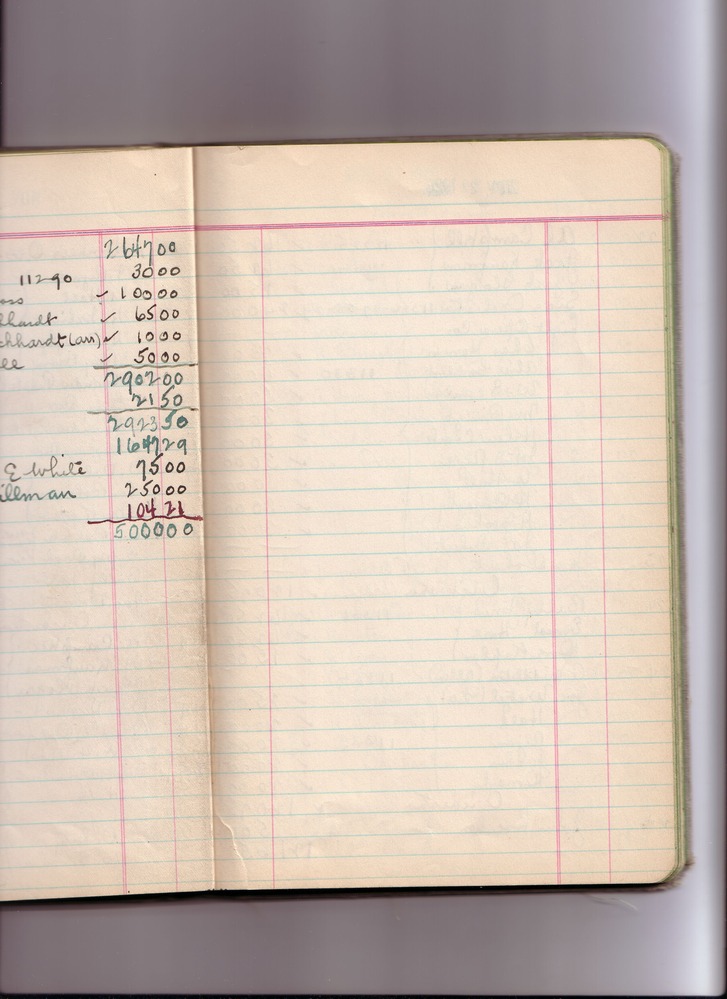 264700
11290 3000
✓ 10000
✓ 6500
(an) ✓ 1000
✓ 5000
290200
2150
292350
164729
E White 7500
illman 25000
10421
500000